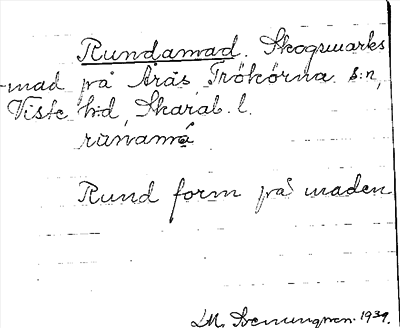 Rundamad. Skogsmarks
-mad på Årås, Trökörna s:n,
Viste h:d, Skarab. l.
runamå
Rund form på maden
1939.